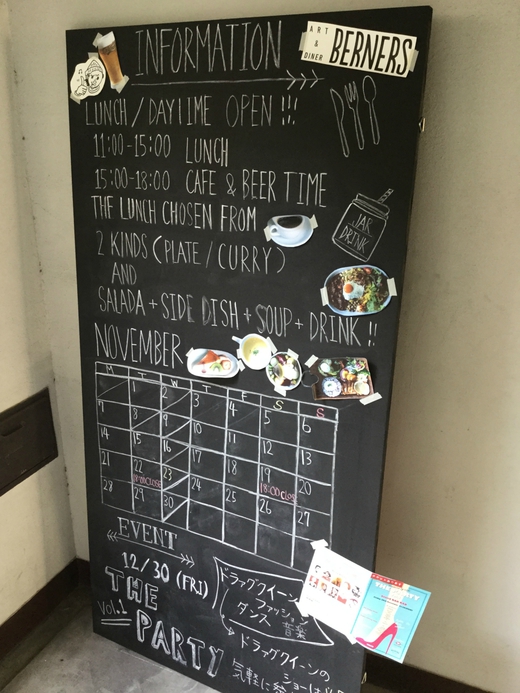 INFORMATION
ART & DINER BERNERS
LUNCH / DAYTIME OPEN !!!
11:00-15:00 LUNCH
15:00-18:00 CAFE & BEER TIME
THE LUNCH CHOSEN FROM
2 KINDS (PLATE / CURRY)
JAR DRINK
AND
SALADA + SIDE DISH + SOUP + DRINK !!
NOVEMBER
M T W T F S S
1 2 3 4 5 6
7 8 9 10 11 12 13
14 15 16 17 18 19 20
21 22 23 24 25 26 27
28 29 30
18:00 CLOSE
EVENT
12/30 (FRI)
THE PARTY
VOL.1
ドラッグクイーン
ファッション
ダンス 音楽
ドラッグクイーンの
ショーは
気軽に
THE PARTY